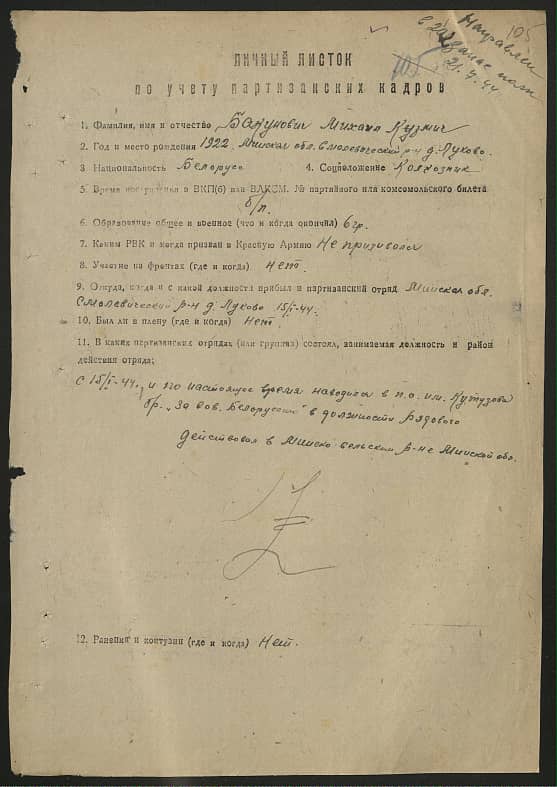 Направлен 105
в запасной полк
21.7.44
ЛИЧНЫЙ ЛИСТОК
по учету партизанских кадров
1. Фамилия, имя и отчество Банунович Михаил Кузмич
2. Год и место рождения 1922, Минская обл. Смолевический р-н д. Луково.
3 Национальность Белорус 4. Соцположение Колхозник
5. Время поступления в ВКП(б) или ВЛКСМ. № партийного или комсомольского билета
б/п.
6. Образование общее и военное (что и когда окончил) 6 гр.
7. Каким РВК и когда призван в Красную Армию Не призивался
8. Участие на фронтах (где и когда) нет.
9. Откуда, когда и с какой должности прибыл в партизанский отряд Минская обл.
Смолевический р-н д. Луково 15/I-44.
10. Был ли в плену (где и когда) Нет
11. В каких партизанских отрядах (или группах) состоял, занимаемая должность и район
действия отряда;
С 15/I-44. и по настоящее время находился в п.о. им. Кутузова
бр. „За Сов. Белоруссию" в должности рядового
Действовал в Минско сельском р-не Минской обл.
12. Ранения и контузии (где и когда) Нет.